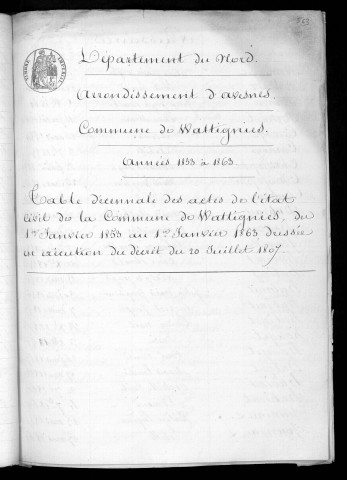 Département du Nord.
Arrondissement d'avesnes.
Commune de Wattignies.
Années 1853 à 1863.
Table décennale des actes de l'état
civil de la Commune de Wattignies, du
1er Janvier 1853 au 1er Janvier 1863 dressée
en exécution du décrêt du 20 Juillet 1807.